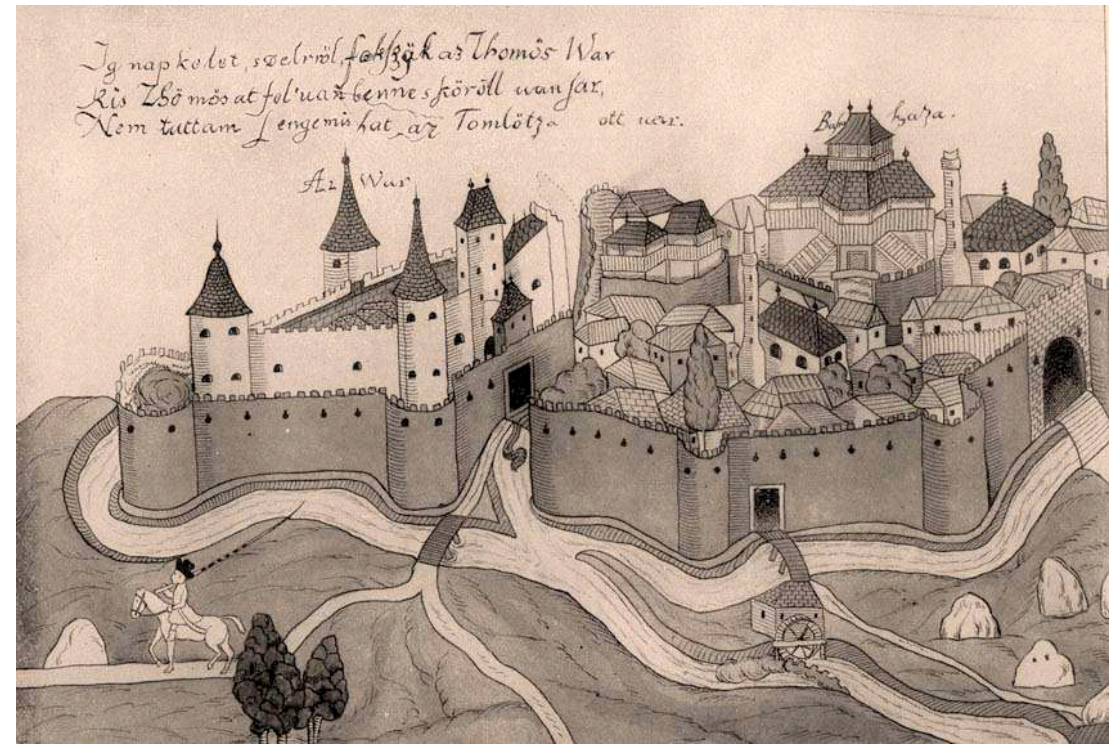 Ig nap kelet, szelröl, fekszÿk az Thomös War
Kis Thömösat fel'uañ benne s köröll uan sar,
Nem tuttam Lengemis hat az Tomlötza ott uar.
haza.
Az War